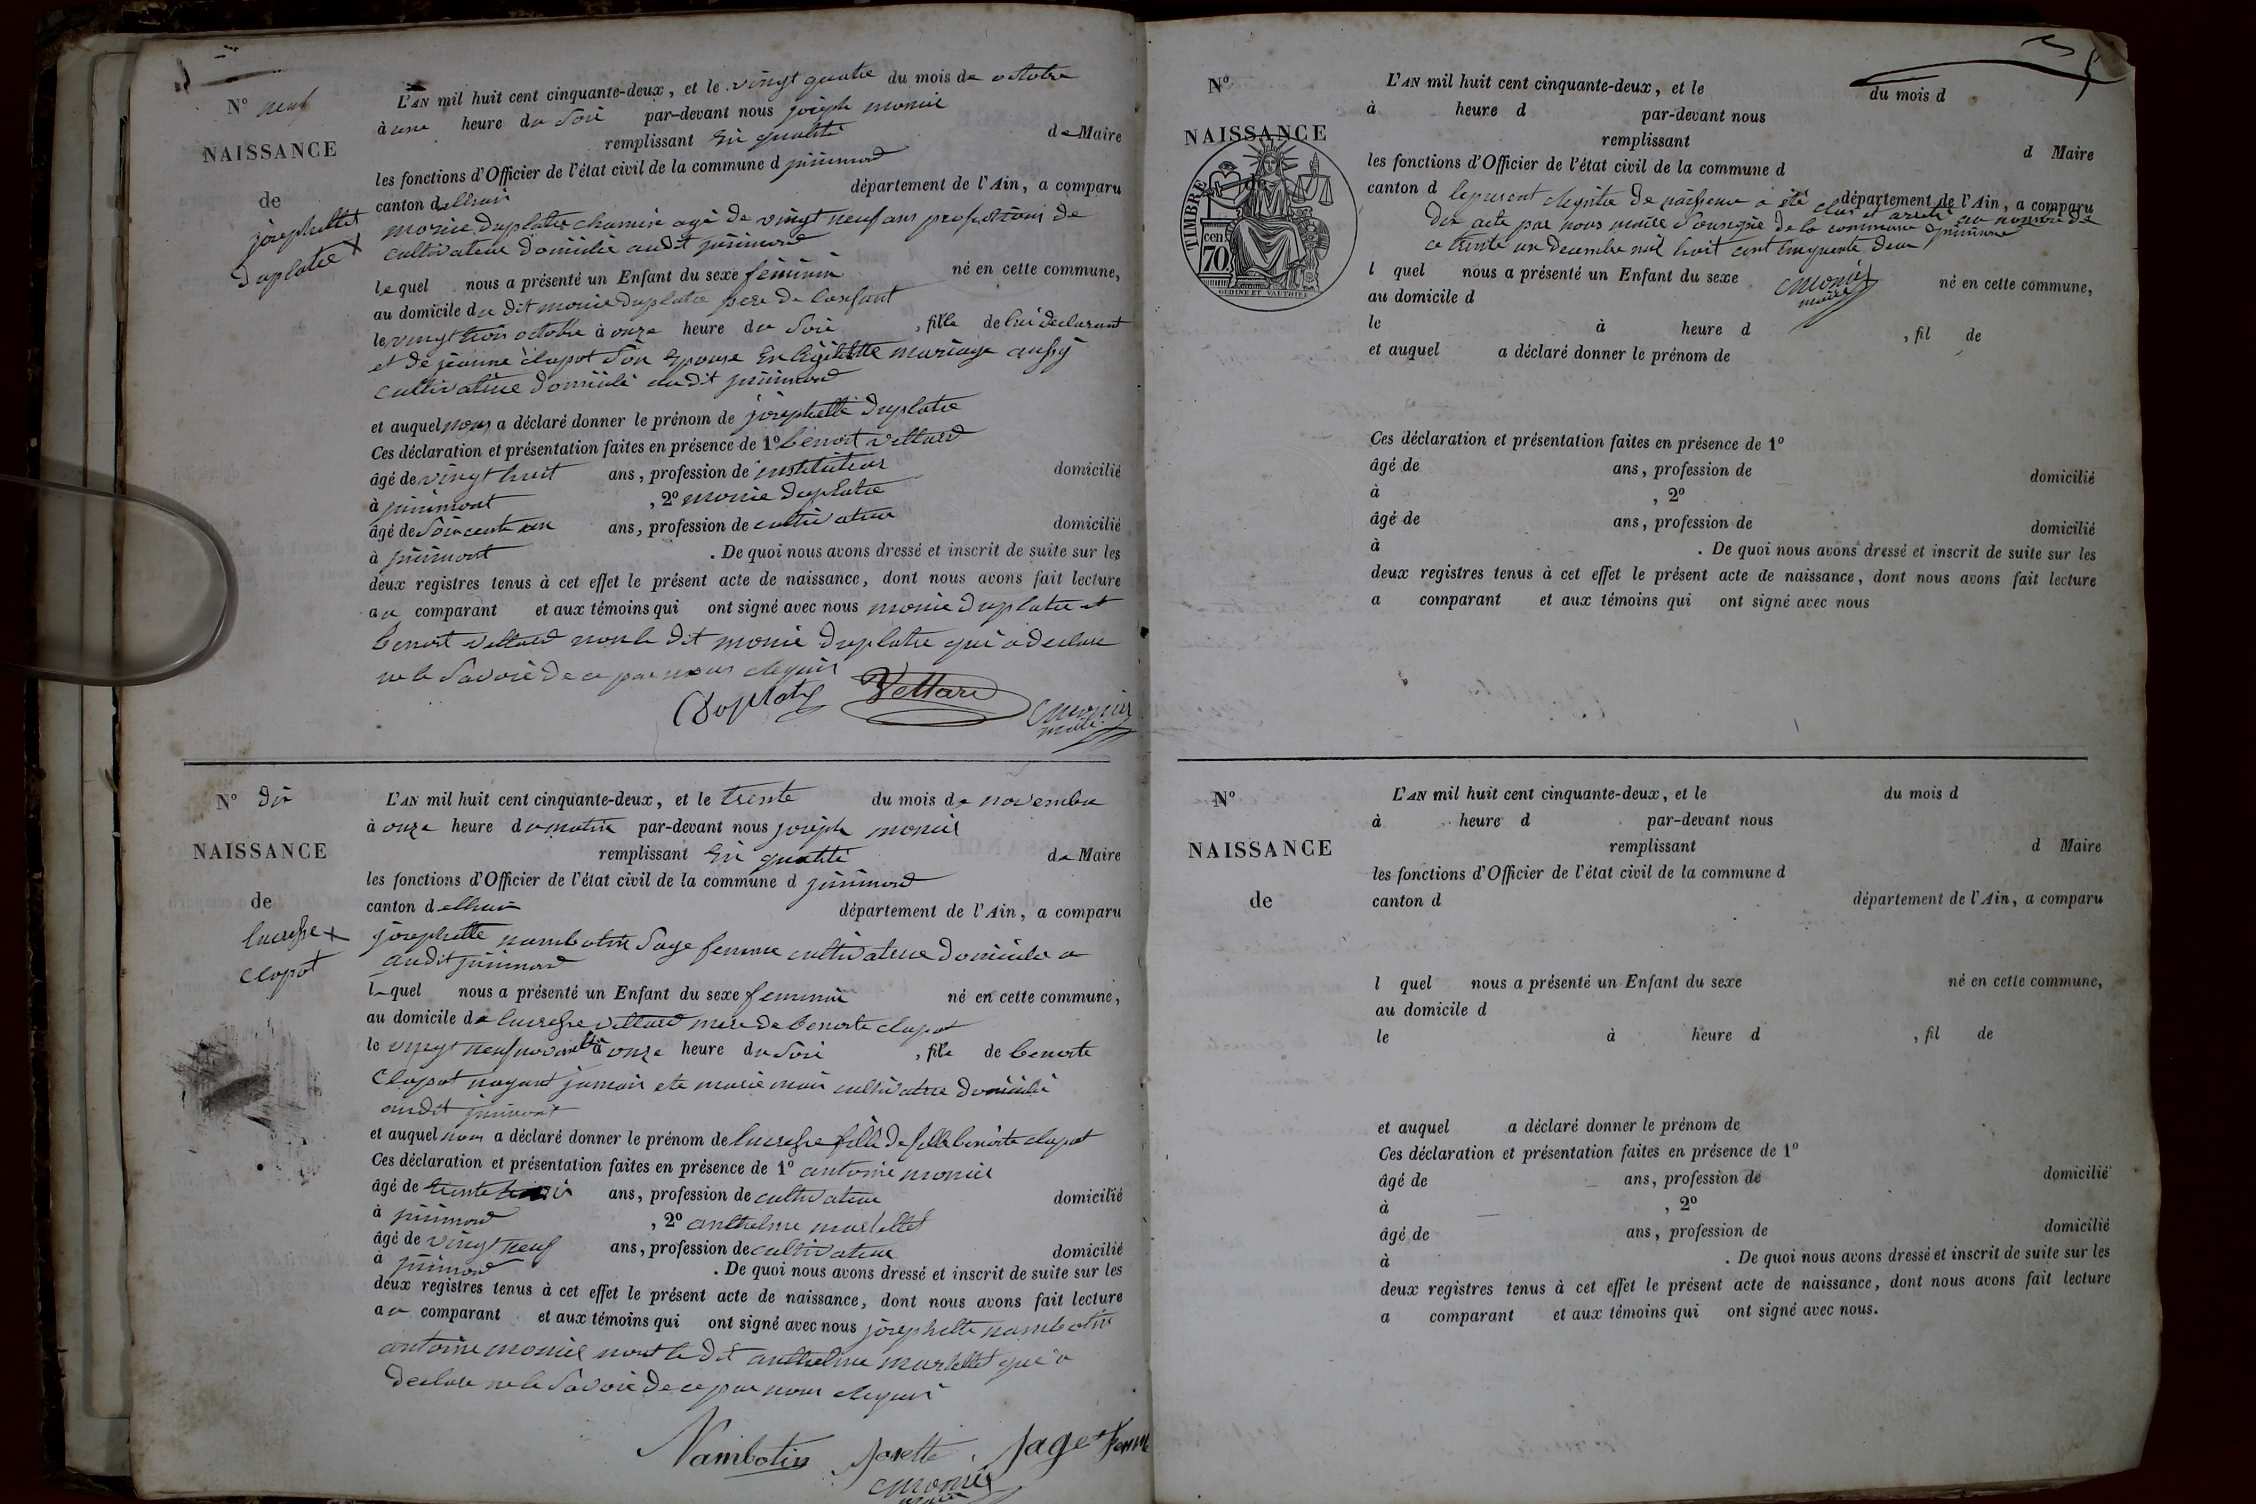 N° neuf
NAISSANCE
de
josephette
Duplatre
L'AN mil huit cent cinquante-deux, et le vingt quatre du mois de octobre
à une heure du Soir par-devant nous joseph monier
remplissant en qualité de Maire
les fonctions d'Officier de l'état civil de la commune d prémond
canton d département de l'Ain, a comparu
Duplatre agé de vingt neuf ans profession de
cultivateur domicilié audit
lequel nous a présenté un Enfant du sexe féminin né en cette commune,
au domicile du dit Duplatre pere de lenfant
le vingt trois octobre à onze heure du Soir, fille de lui declarant
et de jeanne clapot Son epouse En légitime mariage aussy
cultivatrice domicilié audit
et auquel nous a déclaré donner le prénom de josephette Duplatre
Ces déclaration et présentation faites en présence de 1° benoit Vettard
âgé de vingt huit ans, profession de instituteur domicilié
à, 2° Duplatre
âgé de Soixante un ans, profession de cultivateur domicilié
à. De quoi nous avons dressé et inscrit de suite sur les
deux registres tenus à cet effet le présent acte de naissance, dont nous avons fait lecture
au comparant et aux témoins qui ont signé avec nous Duplatre et
benoit Vettard non le dit Duplatre qui a declare
ne le Savoir de ce par nous requis
Duplatre Vettard Monier
maire
N° Dix
NAISSANCE
de
lucresse
clapot
L'AN mil huit cent cinquante-deux, et le trente du mois de novembre
à onze heure du matin par-devant nous joseph monier
remplissant en qualité de Maire
les fonctions d'Officier de l'état civil de la commune d
canton d département de l'Ain, a comparu
josephette nambotin Sage femme cultivatrice domicilié a
audit
lequel nous a présenté un Enfant du sexe feminin né en cette commune,
au domicile de lucresse Vettard mere de benoite clapot
le vingt neuf novembre à onze heure du Soir, fille de benoite
Clapot nayant jamais ete marié mais cultivatrice domicilié
audit
et auquel nous a déclaré donner le prénom de lucresse fille de benoite clapot
Ces déclaration et présentation faites en présence de 1° antoine monier
âgé de trente ans, profession de cultivateur domicilié
à, 2° anthelme martellet
âgé de vingt neuf ans, profession de cultivateur domicilié
à. De quoi nous avons dressé et inscrit de suite sur les
deux registres tenus à cet effet le présent acte de naissance, dont nous avons fait lecture
au comparant et aux témoins qui ont signé avec nous josephette nambotin
antoine monier non le dit anthelme martellet qui a
declare ne le Savoir de ce par nous requis
Nambotin Josette Sage femme
Monier
maire
N°
NAISSANCE
TIMBRE
cen.
70.
OUDINE ET VAUTHIER
L'AN mil huit cent cinquante-deux, et le du mois d
à heure d par-devant nous
remplissant d Maire
les fonctions d'Officier de l'état civil de la commune d
canton d département de l'Ain, a comparu
le present registre de naissance a été clos et arreté au nombre de
Dix acte par nous maire Soussigné de la commune
ce trente un decembre mil huit cent cinquante deux
l quel nous a présenté un Enfant du sexe né en cette commune,
Monier
maire
au domicile d
le à heure d , fil de
et auquel a déclaré donner le prénom de
Ces déclaration et présentation faites en présence de 1°
âgé de ans, profession de domicilié
à , 2°
âgé de ans, profession de domicilié
à . De quoi nous avons dressé et inscrit de suite sur les
deux registres tenus à cet effet le présent acte de naissance, dont nous avons fait lecture
a comparant et aux témoins qui ont signé avec nous
N°
NAISSANCE
de
L'AN mil huit cent cinquante-deux, et le du mois d
à heure d par-devant nous
remplissant d Maire
les fonctions d'Officier de l'état civil de la commune d
canton d département de l'Ain, a comparu
l quel nous a présenté un Enfant du sexe né en cette commune,
au domicile d
le à heure d , fil de
et auquel a déclaré donner le prénom de
Ces déclaration et présentation faites en présence de 1°
âgé de ans, profession de domicilié
à , 2°
âgé de ans, profession de domicilié
à . De quoi nous avons dressé et inscrit de suite sur les
deux registres tenus à cet effet le présent acte de naissance, dont nous avons fait lecture
a comparant et aux témoins qui ont signé avec nous.